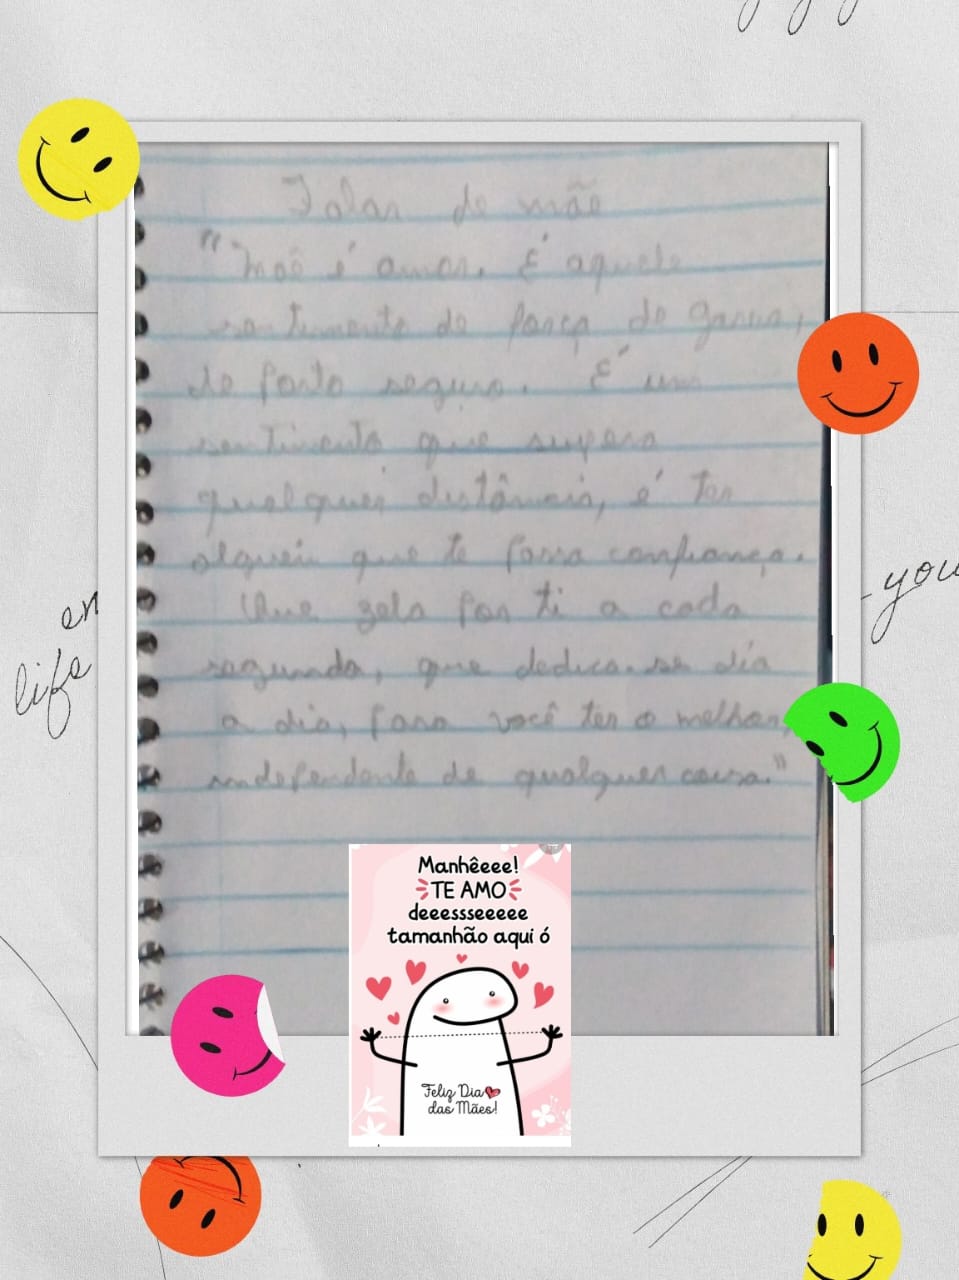 Falar de mãe
"Mãe é amor. É aquele
sentimento de força, de garra,
de porto seguro. É um
sentimento que supera
qualquer distância, é ter
alguém que te passa confiança.
Que zela por ti a cada
segundo, que dedica-se dia
a dia, para você ter o melhor,
independente de qualquer coisa."
en
life
you
Manhêeee!
TE AMO
deeessseeeee
tamanhão aqui ó
Feliz Dia
das Mães!